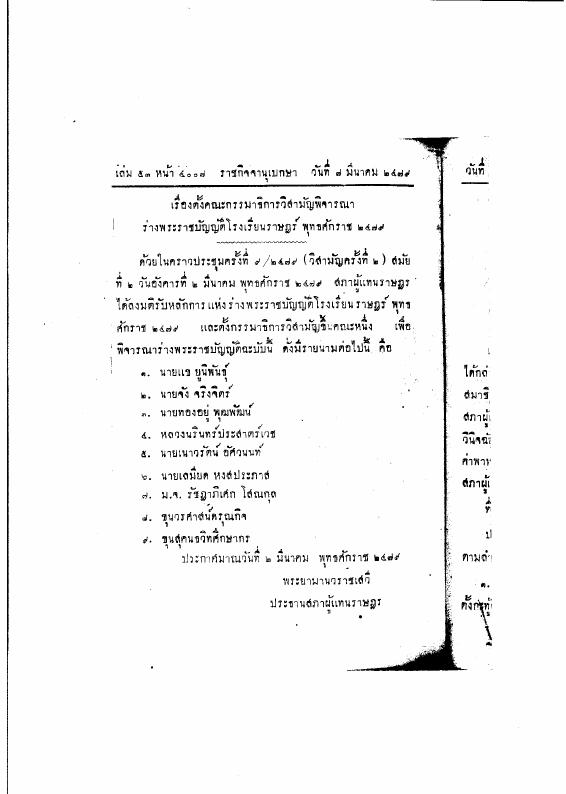 เล่ม ๕๓ หน้า ๔๐๐๗ ราชกิจจานุเบกษา วันที่ ๗ มีนาคม ๒๔๗๙
เรื่องตั้งคณะกรรมาธิการวิสามัญพิจารณา
ร่างพระราชบัญญัติโรงเรียนราษฎร์ พุทธศักราช ๒๔๗๙
ด้วยในคราวประชุมครั้งที่ ๙/๒๔๗๙ (วิสามัญครั้งที่ ๒) สมัย
ที่ ๒ วันอังคารที่ ๒ มีนาคม พุทธศักราช ๒๔๗๙ สภาผู้แทนราษฎร
ได้ลงมติรับหลักการแห่งร่างพระราชบัญญัติโรงเรียนราษฎร์ พุทธ
ศักราช ๒๔๗๙ และตั้งกรรมาธิการวิสามัญขึ้นคณะหนึ่ง เพื่อ
พิจารณาร่างพระราชบัญญัติฉะบับนี้ ดั่งมีรายนามต่อไปนี้ คือ
๑. นายแช ยูนิพันธุ์
๒. นายจัง จริงจิตร์
๓. นายทองอยู่ พุฒพัฒน์
๔. หลวงนรินทร์ประสาตร์เวช
๕. นายเนาวรัตน์ อัศวนนท์
๖. นายเสมียด หงส์ประภาส
๗. ม.จ. รัชฎาภิเศก โสณกุล
๘. ขุนวรศาสน์ดรุณกิจ
๙. ขุนสุคนธวิทศึกษากร
ประกาศมาณวันที่ ๒ มีนาคม พุทธศักราช ๒๔๗๙
พระยามานวราชเสวี
ประธานสภาผู้แทนราษฎร
วันที่
ได้กล่
สมาชิ
สภาผู้
วินิจฉั
คำพาพ
สภาผู้
ที่
ป
ตามลำ
๑.
ตั้งกระทู้